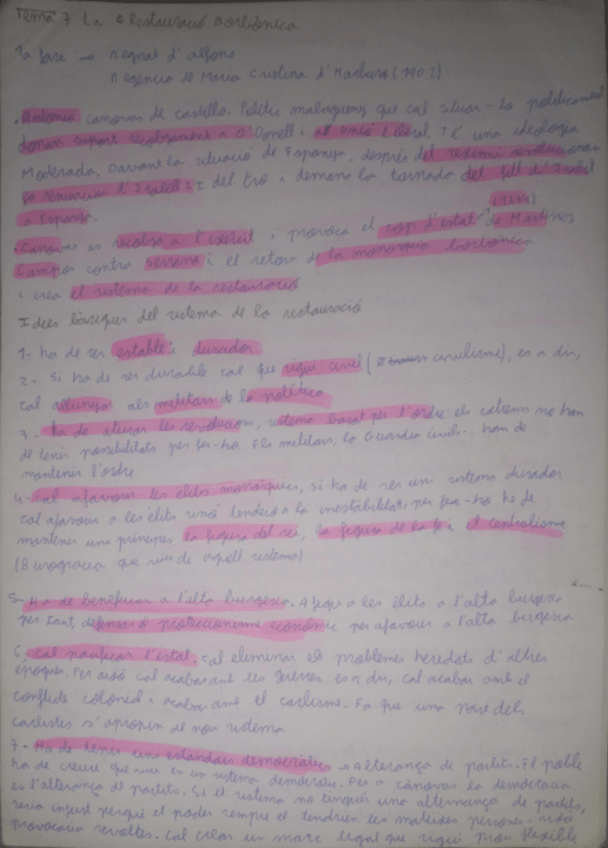 Tema 7 La Restauració Borbònica
1a fase → Regnat d'alfons
Regència de Maria Cristina d'Habsburg (1902)
• Antonio canovas de castillo. Polític malagueny que cal situar-lo políticament
donan suport inicialment a O'Donell i al unió liberal. Té una ideologia
Moderada. Davant la situació de Espanya, després del règim revolucionari
la renuncia d'Isabell II del tro i demana la tornada del fill d'Isabel
a Espanya.
(1874)
• Canovas es recolza a l'exèrcit i provoca el cop d'estat de Martínez
Campos contra Serrano i el retorn de la monarquia borbònica
i crea el sistema de la restauració
Idees bàsiques del sistema de la restauració
1- ha de ser estable i durador
2- Si ha de ser durable cal que sigui civil ( civilisme), es a dir,
cal allunyar als militars de la política
3- Ha de aturar les revolucions, sistema basat per l'ordre els extrems no han
de tenir possibilitats per fer-ho. Els militars, la Guardia civil... han de
mantenir l'ordre
4- Cal afavorir les èlits monàrquics, si ha de ser un sistema durador
cal afavorir a les èlits sinó tendeix a la inestabilitat, per fer-ho he de
mantenir uns principis la figura del rei, la figura de la fe i el centralisme
(Burogracia que viu de aquell sistema)
5- Ha de beneficiar a l'alta burgesia. Afegir a les èlits a l'alta burgesia
per tant, defensa d proteccionisme econòmic per afavorir a l'alta burgesia
6- cal pacificar l'estat. Cal eliminar els problemes heredats d'altres
èpoques. Per això cal acabar amb les guerres es a dir, cal acabar amb el
conflicte colonial i acabar amb el carlisme. Fa que una part dels
carlistes s'apropin al nou sistema
7- Ha de tenir uns estàndars democràtics → alterança de partits. El poble
ha de creure que viu en un sistema democràtic. Per a cànovas la democràcia
es l'alterança de partits. Si el sistema no tingués una alternança de partits,
seria injust perquè el poder sempre el tendrien les mateixes persones i això
provocaria revoltes. Cal crear un marc legal que sigui prou flexible